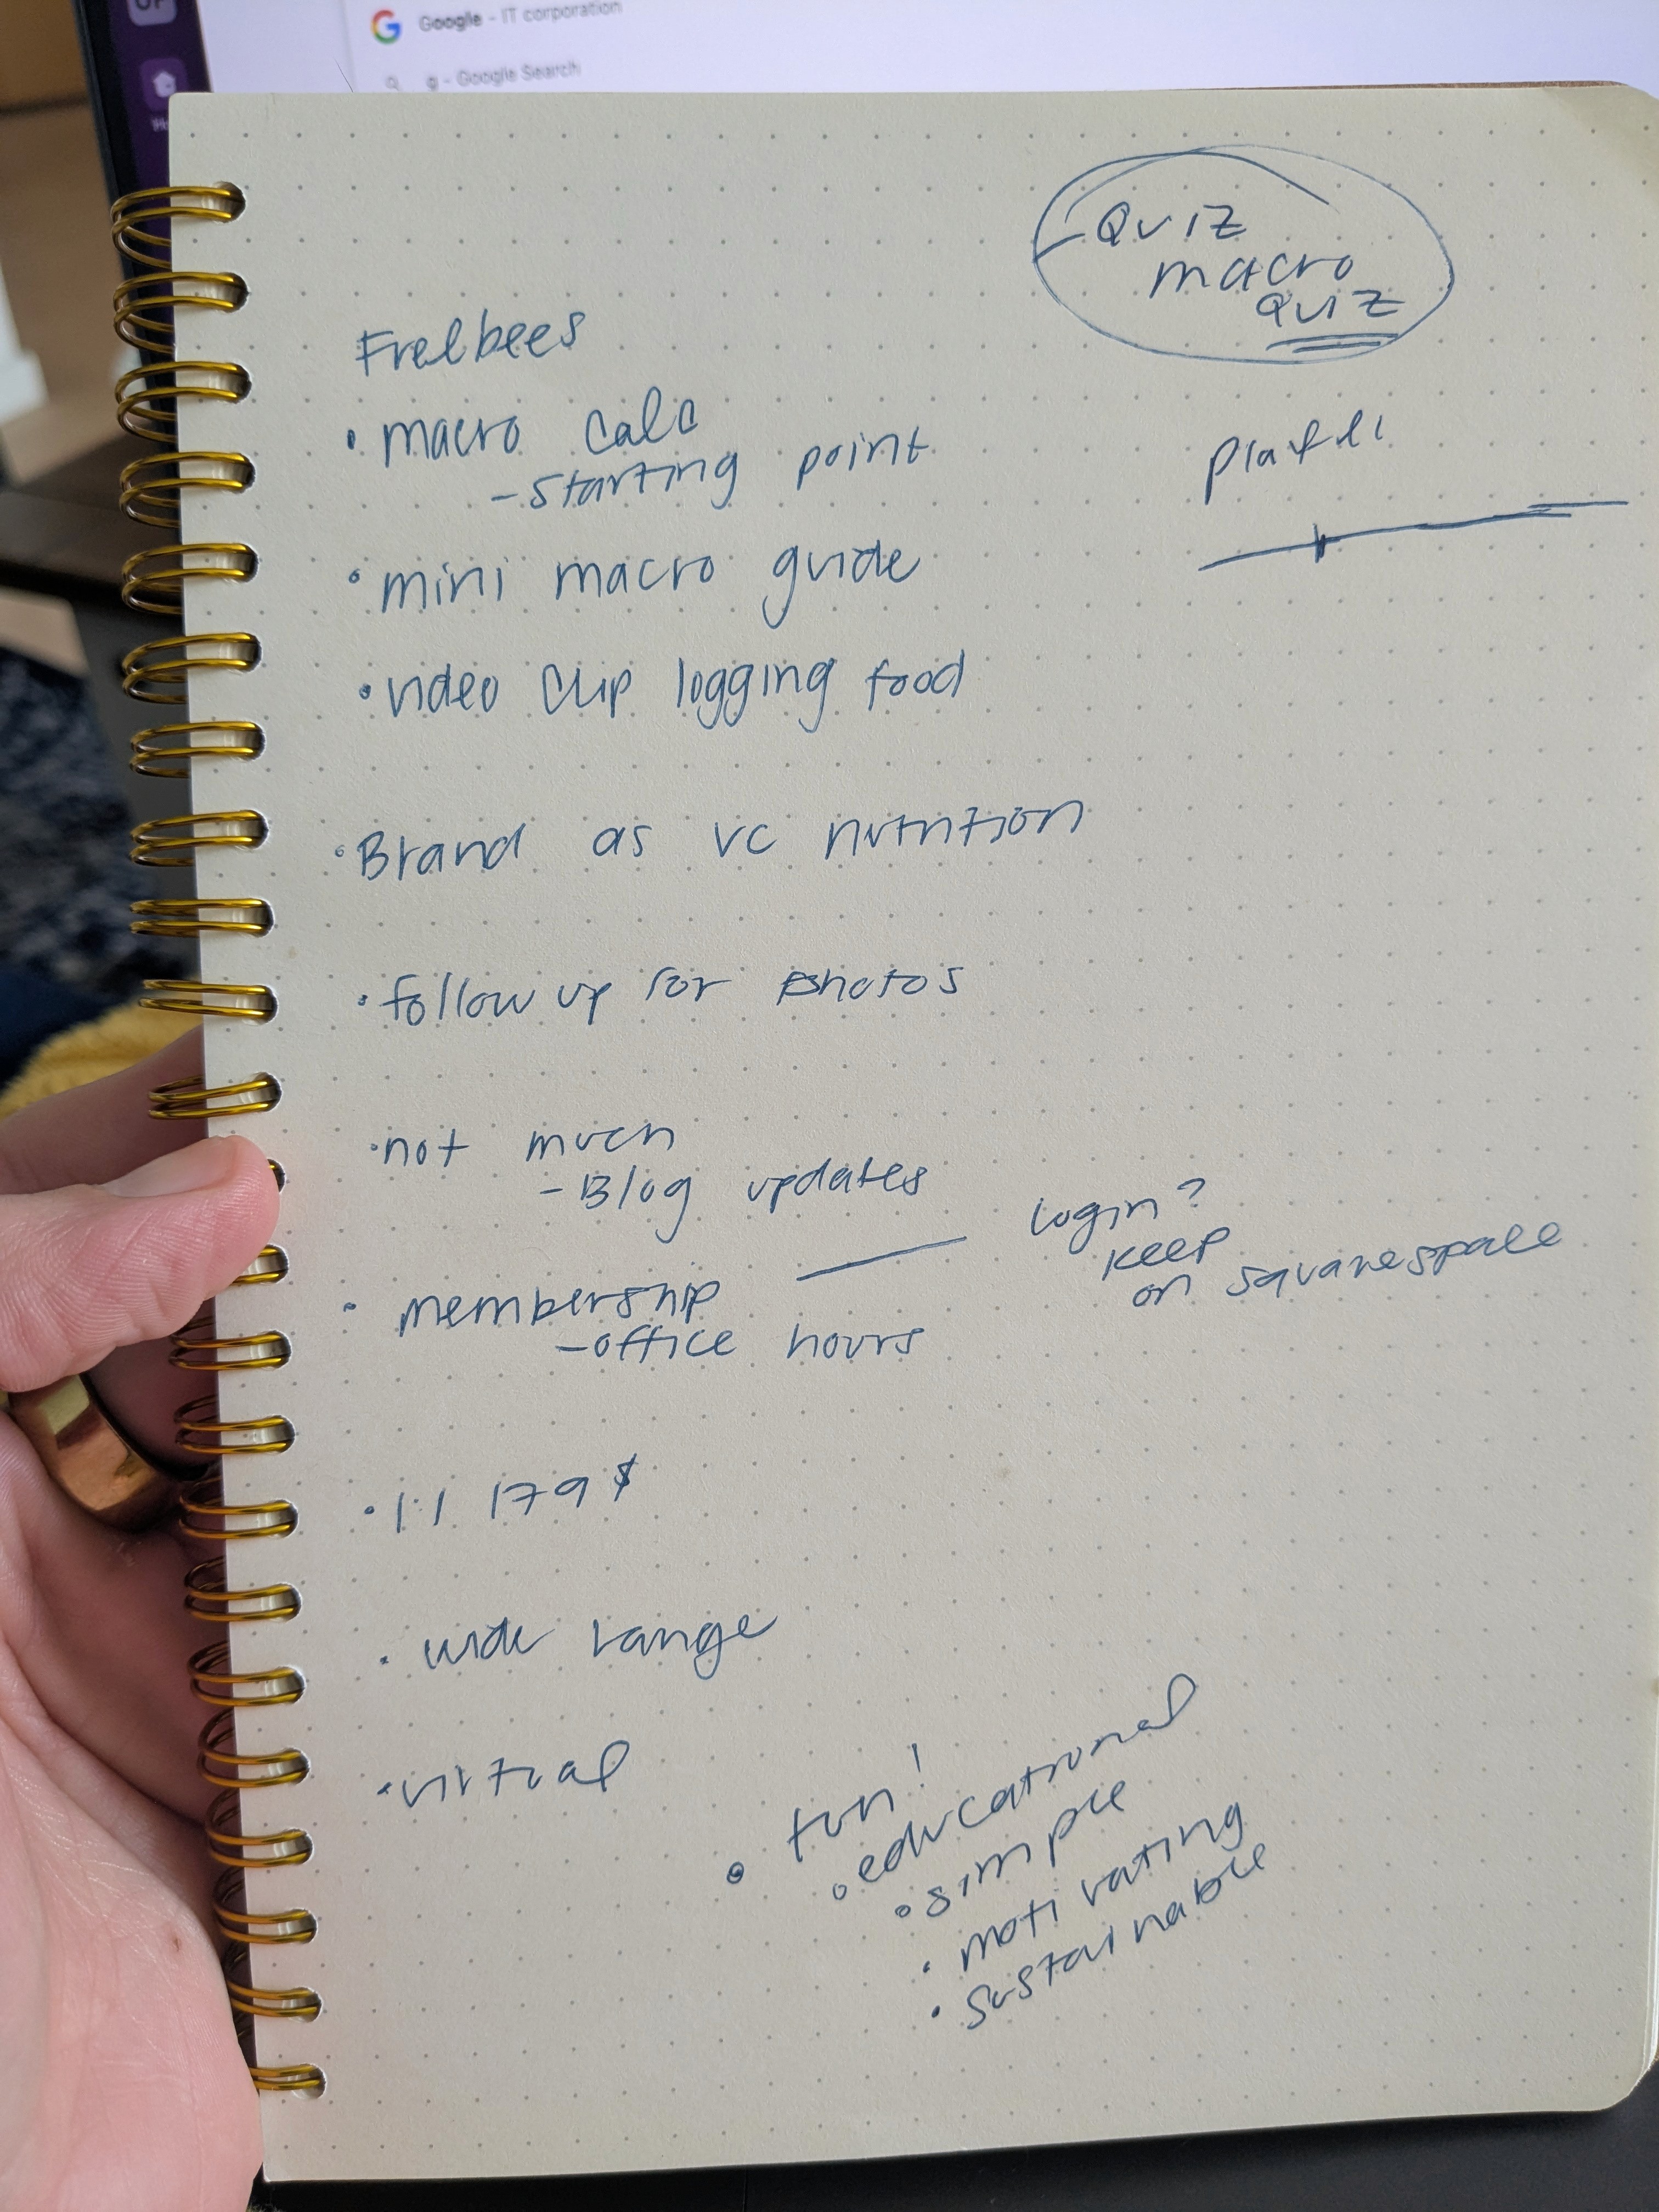 UP
Google - IT corporation
g - Google Search
QUIZ
macro
QUIZ
Freebees
• macro calc
- starting point
• mini macro guide
• video clip logging food
• Brand as VC nutrition
• follow up for photos
• not much
- Blog updates
login?
keep
on squarespace
• membership
- office hours
• 1:1 179$
• wide range
• virtual
• fun!
• educational
• simple
• motivating
• sustainable